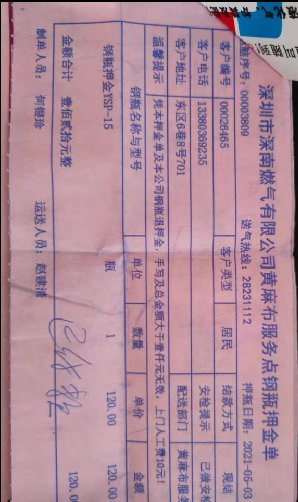 深圳市深南燃气有限公司黄麻布服务点钢瓶押金单
顺序号: 00003809 送气热线: 28231112 押瓶日期: 2021-05-03
客户编号 00026465 客户类型 居民 结款方式 现结
客户电话 13380369235 安检提示 已做安检
客户地址 东区6巷8号701 配送部门 黄麻布服务
温馨提示 凭本押金单及本公司钢瓶退押金, 手写及总金额大于壹仟元无效, 上门人工费10元!
钢瓶名称与型号 单位 数量 单价 金额
钢瓶押金YSP-15 瓶 1 120.00 120.00
金额合计 壹佰贰拾元整 120.00
制单人员: 何银珍 运送人员: 赵继清